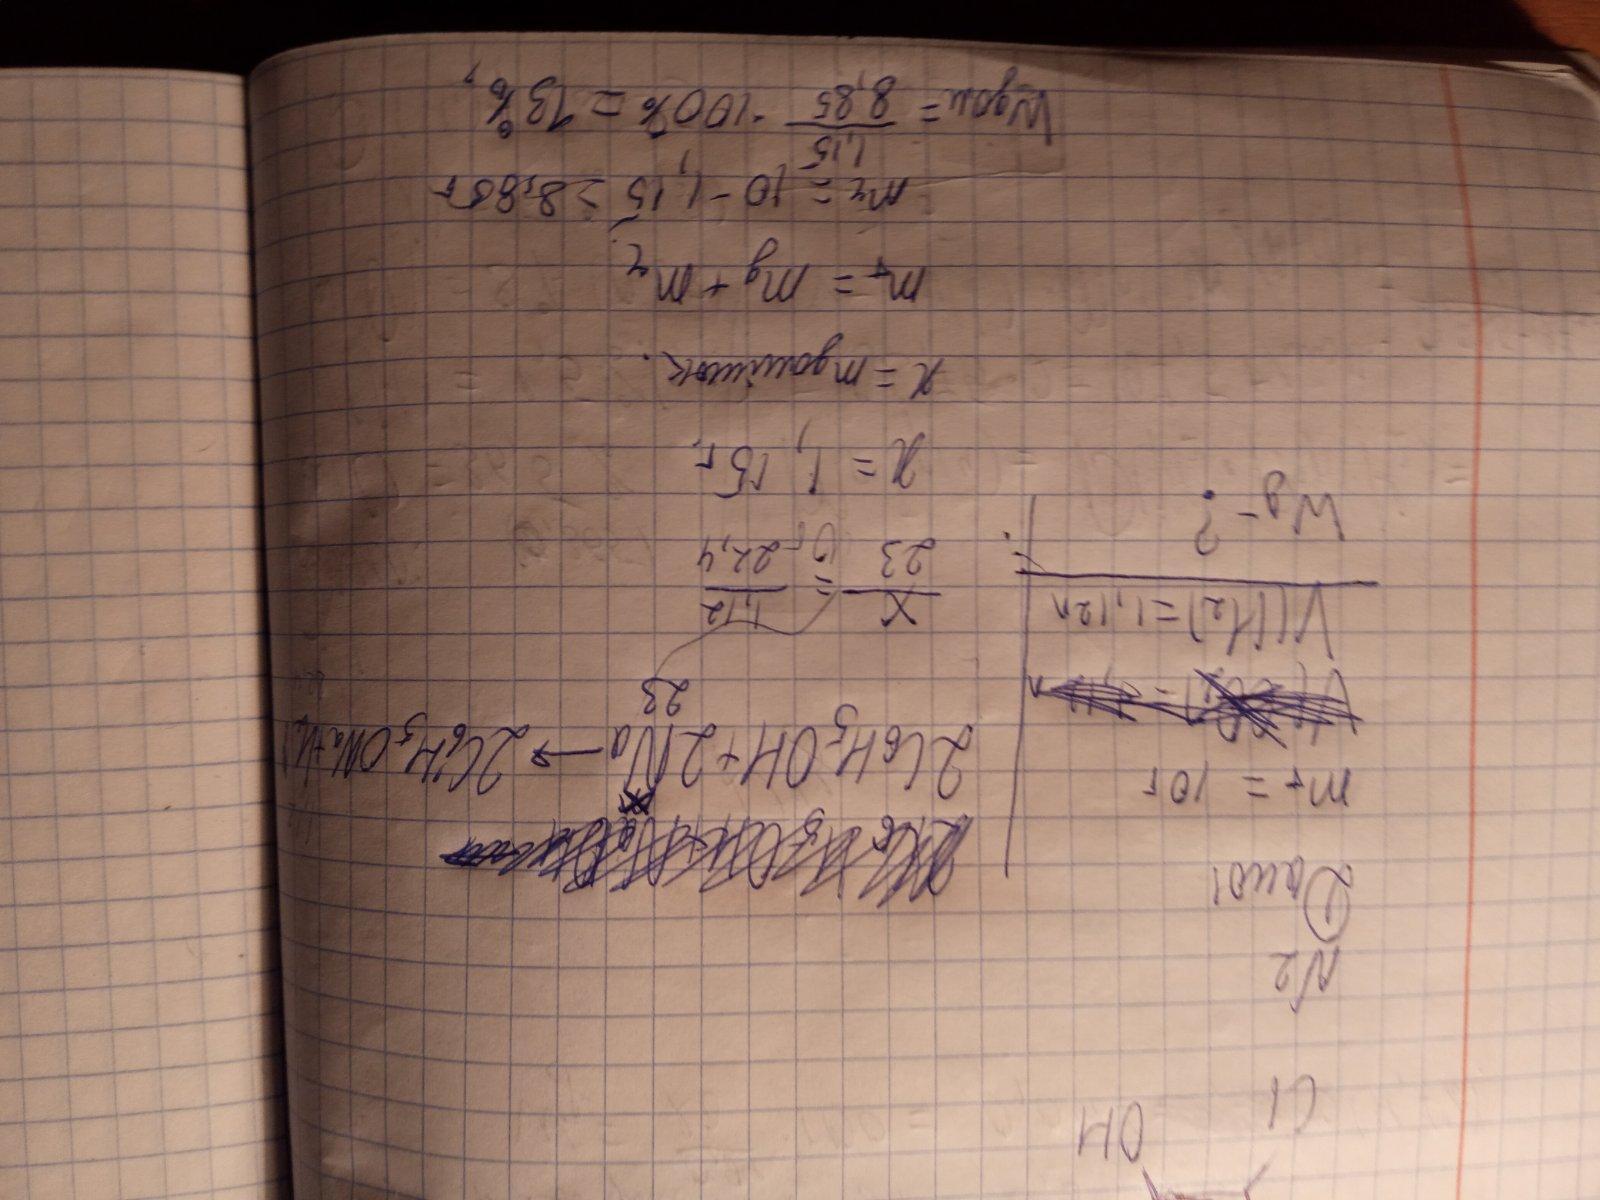 OH
Cl
N2
Дано:
mт = 10г
V(H2) = 1,12л
Wд - ?
2C6H5OH + 2Na → 2C6H5ONa + H2
23
x/23 = 1,12/22,4
x = 1,15г
x = mдомішок.
mт = mд + mч
mч = 10 - 1,15 = 8,85г
Wдом = 1,15/8,85 · 100% = 13%